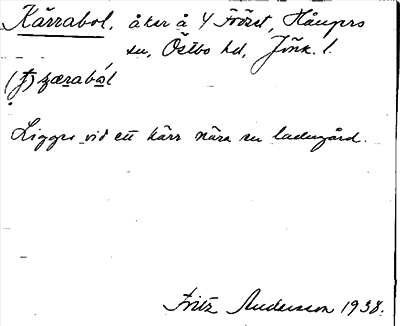 Kärrabol, åker å 4 Fröset, Hångers
sn, Östbo hd, Jönk. l.
(ƒ) çæraból
Ligger vid ett kärr nära en ladugård.
Fritz Andersson 1938.